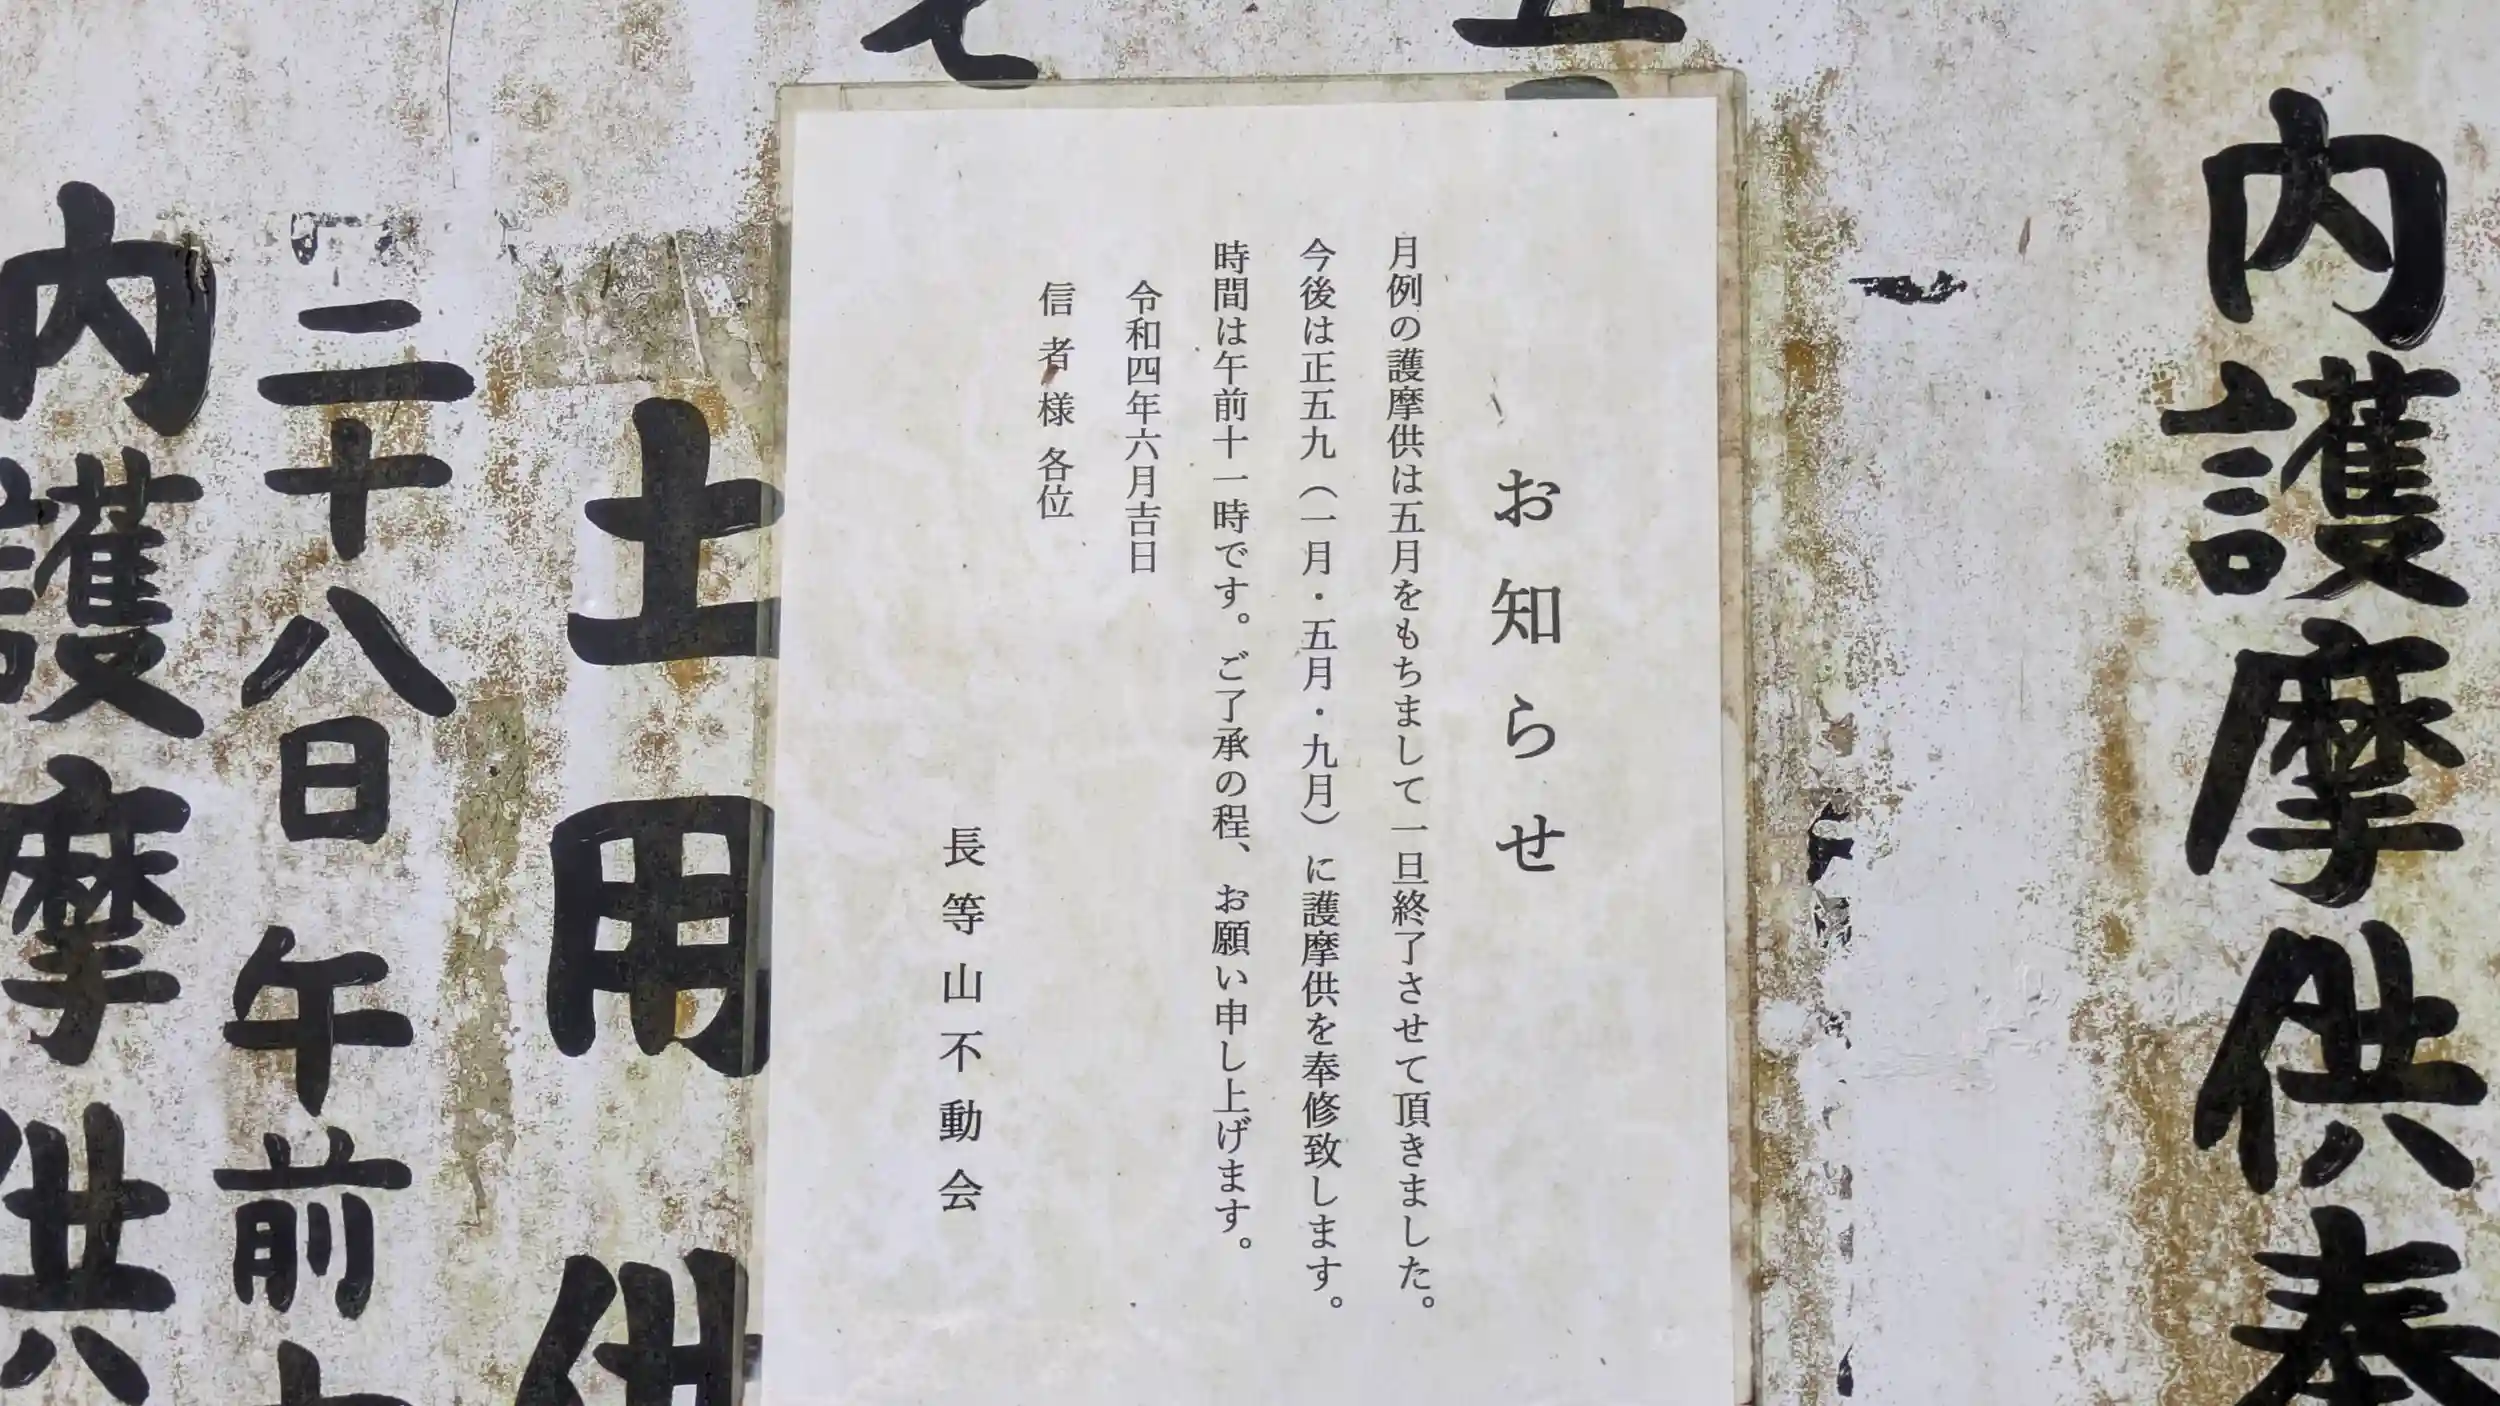 内護摩供奉
お知らせ
月例の護摩供は五月をもちまして一旦終了させて頂きました。
今後は正五九（一月・五月・九月）に護摩供を奉修致します。
時間は午前十一時です。ご了承の程、お願い申し上げます。
令和四年六月吉日
信者様各位
長等山不動会
土用供
二十八日午前
内護摩供